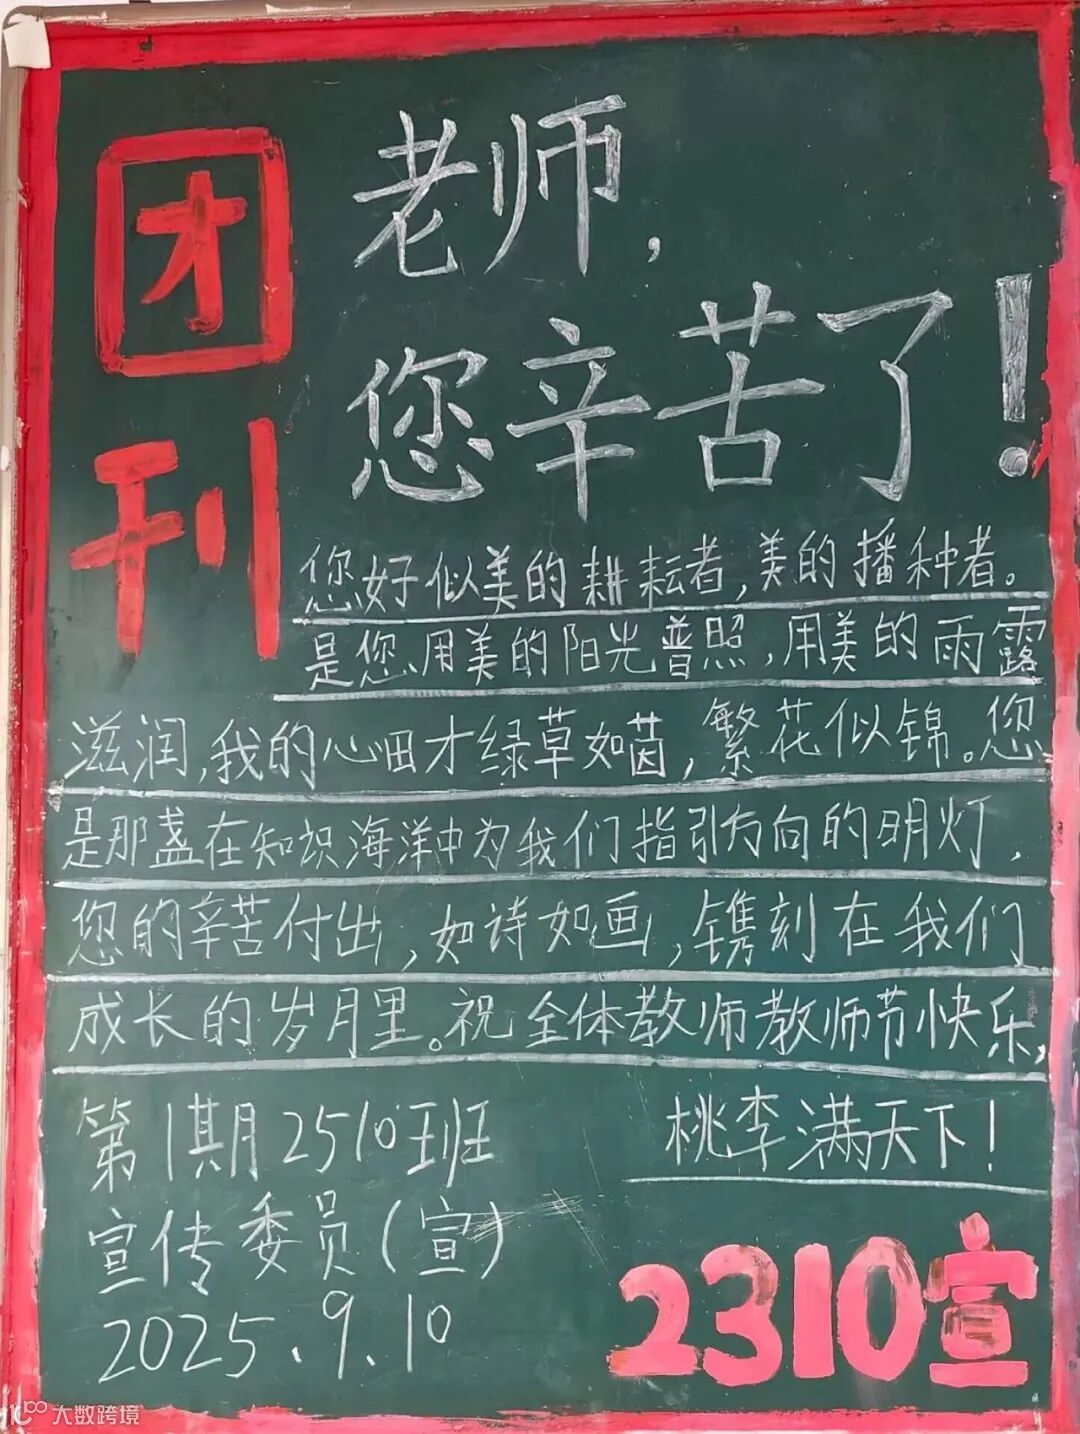 团刊
老师,
您辛苦了!
您好似美的耕耘者,美的播种者。
是您、用美的阳光普照,用美的雨露
滋润,我的心田才绿草如茵,繁花似锦。您
是那盏在知识海洋中为我们指引方向的明灯,
您的辛苦付出,如诗如画,镌刻在我们
成长的岁月里。祝全体教师教师节快乐,
桃李满天下!
第1期2510班
宣传委员(宣)
2025.9.10
2310宣
大数跨境